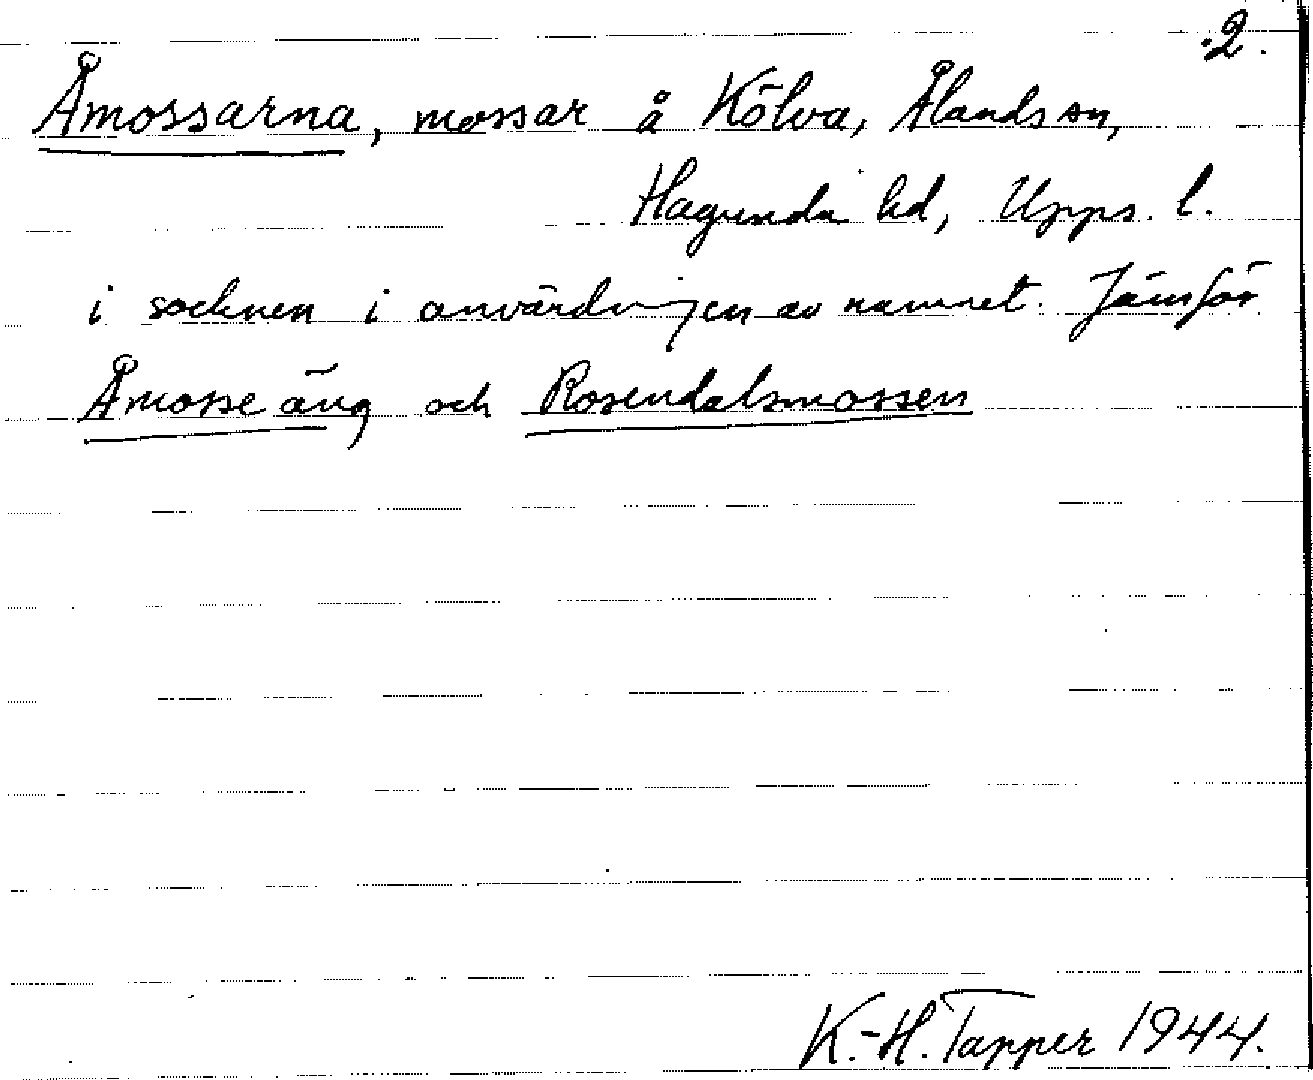 2.
Åmossarna, mossar å Kölva, Ålands sn,
Hagunda hd, Upps. l.
i socknen i användningen av namnet. Jämför
Åmosse äng och Rosendalsmossen
K.-H. Tapper 1944.